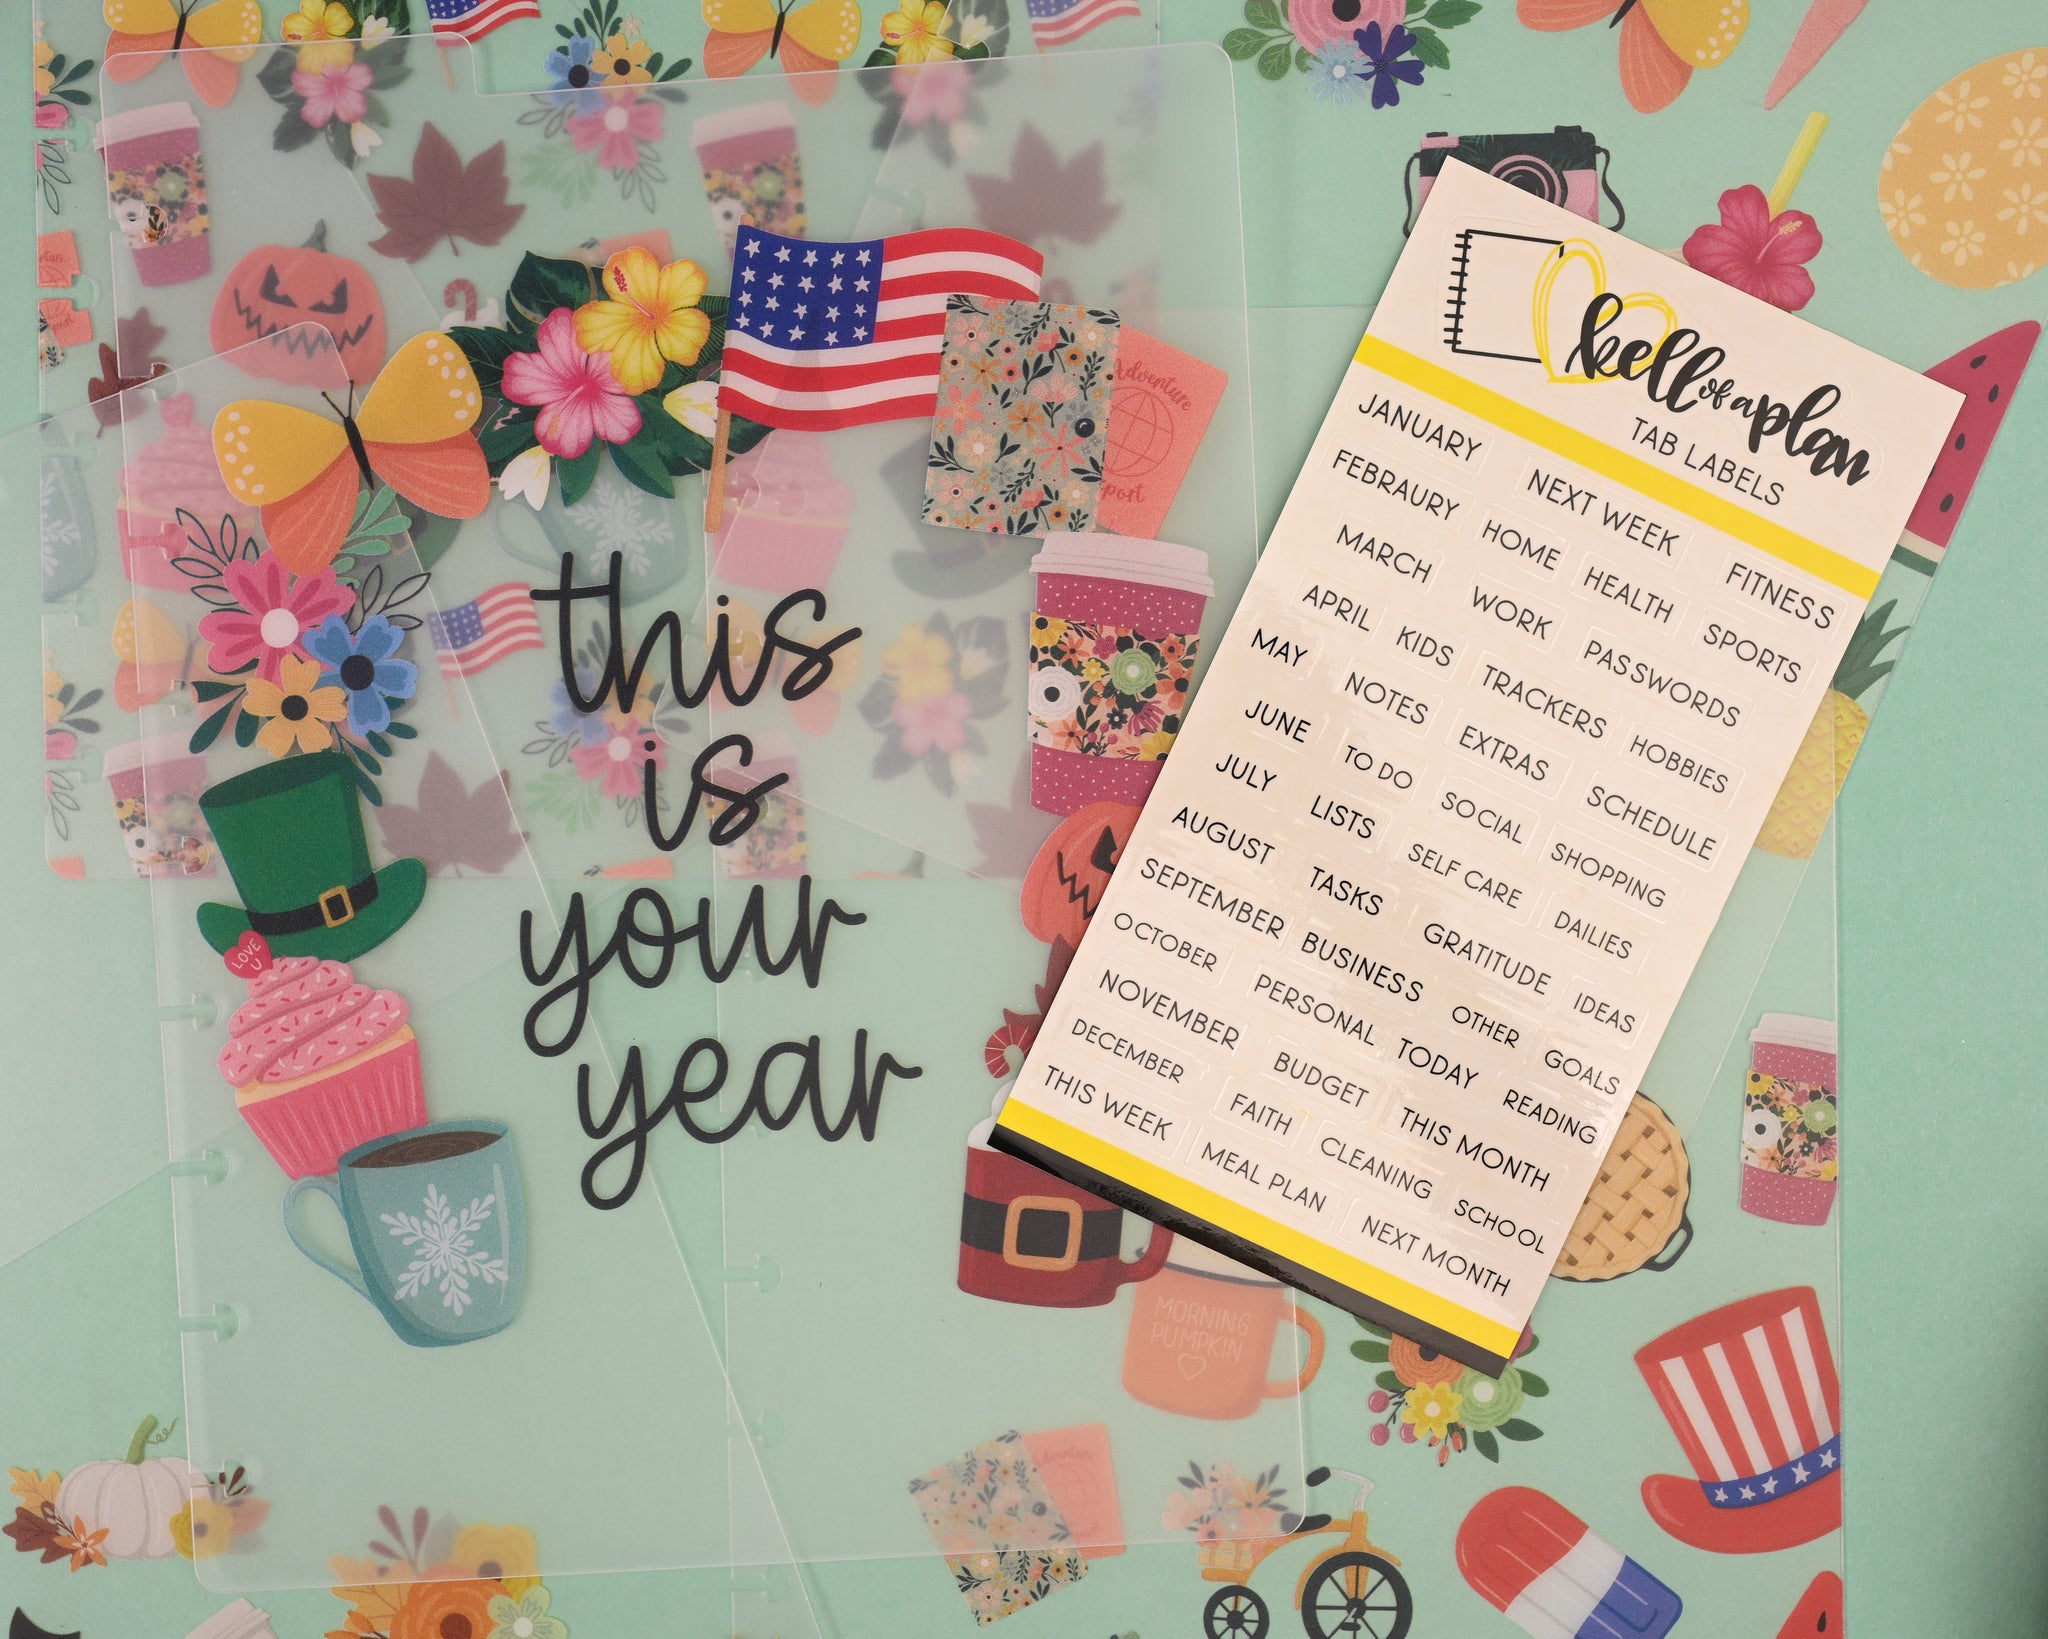 this
is
your
year
LOVE
U
Adventure
port
MORNING
PUMPKIN
kell of a plan
TAB LABELS
JANUARY
FEBRAURY
MARCH
APRIL
MAY
JUNE
JULY
AUGUST
SEPTEMBER
OCTOBER
NOVEMBER
DECEMBER
THIS WEEK
NEXT WEEK
HOME
WORK
KIDS
NOTES
TO DO
LISTS
TASKS
BUSINESS
PERSONAL
BUDGET
FAITH
MEAL PLAN
FITNESS
HEALTH
SPORTS
PASSWORDS
TRACKERS
HOBBIES
EXTRAS
SCHEDULE
SOCIAL
SHOPPING
SELF CARE
DAILIES
GRATITUDE
IDEAS
OTHER
GOALS
TODAY
READING
THIS MONTH
CLEANING
SCHOOL
NEXT MONTH